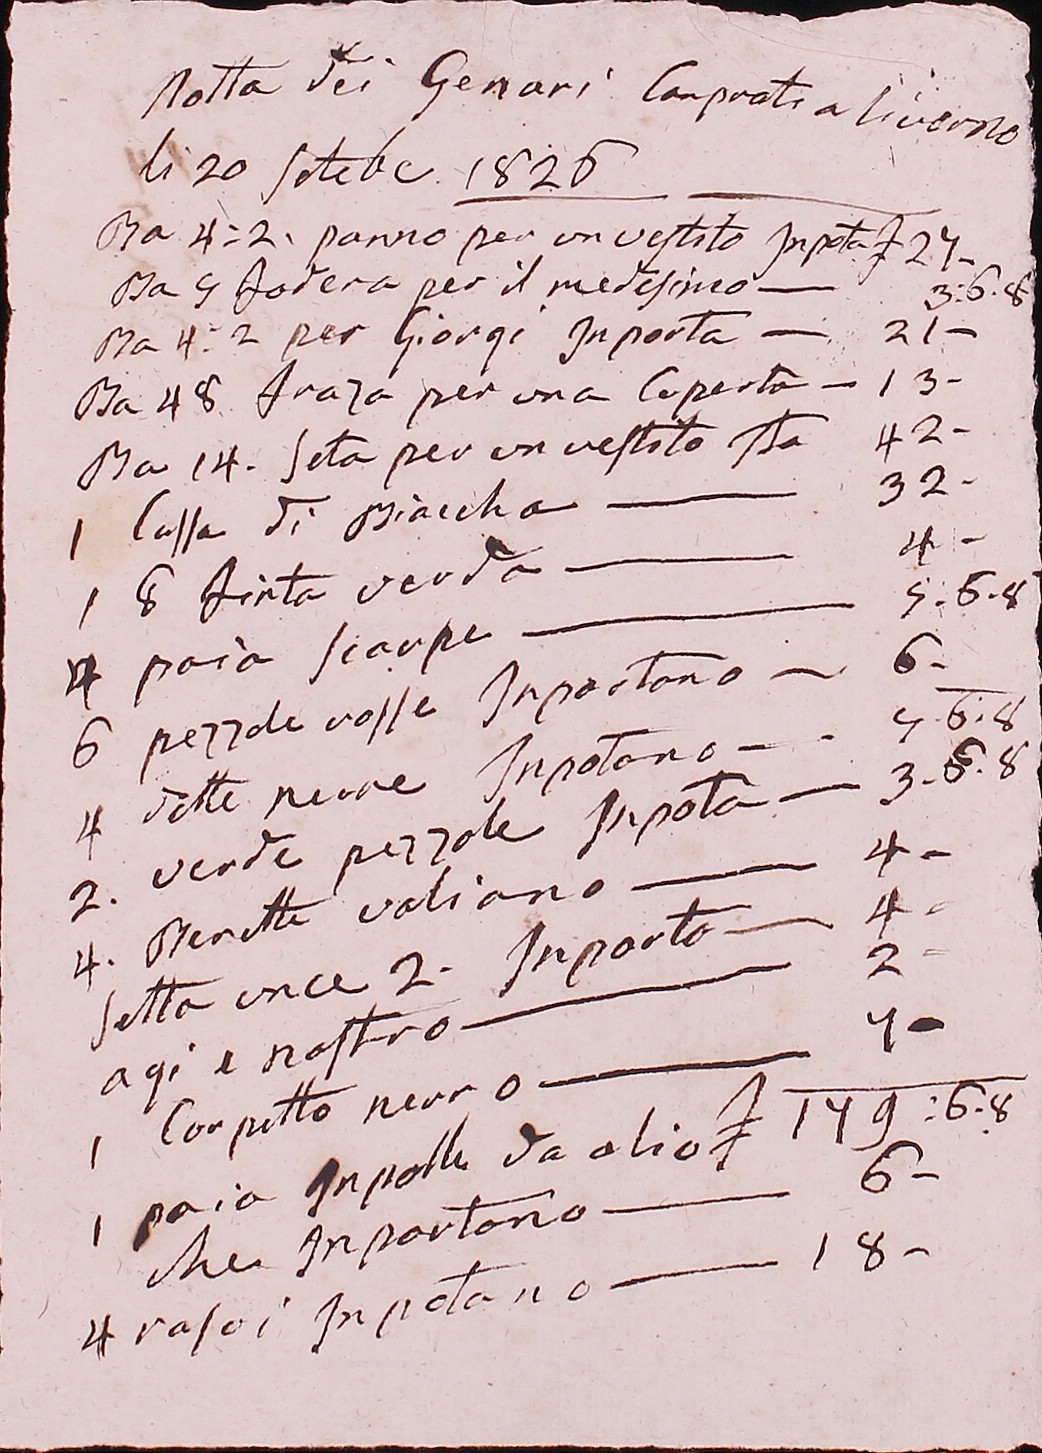 Notta dei Genari Conprati a Livorno
li 20 Setebe 1826
Ba 4:2. panno per un vestito Inpota £ 24-
Ba 5 fodera per il medesimo — 3:6.8
Ba 4:2 per Giorgi Inporta — 21-
Ba 48 fraza per una Coperta — 13-
Ba 14. Seta per un vestito Ba 42-
1 Cassa di Biaccha — 32-
1 8 tinta verda — 4-
4 paia Scarpe — 5.6.8
6 pezzole rosse Inportano — 6-
4 dette neure Inpotano — 5.6.8
2. verde pezzole Inpota — 3.6.8
4. Berette valiano — 4-
Setta unce 2. Inporta — 4-
agi e nastro — 2-
1 Corpetto neuro — 4-
£ 179:6.8
1 paia Inpolle da olio
che Inportano — 6-
4 rasoi Inpotano — 18-